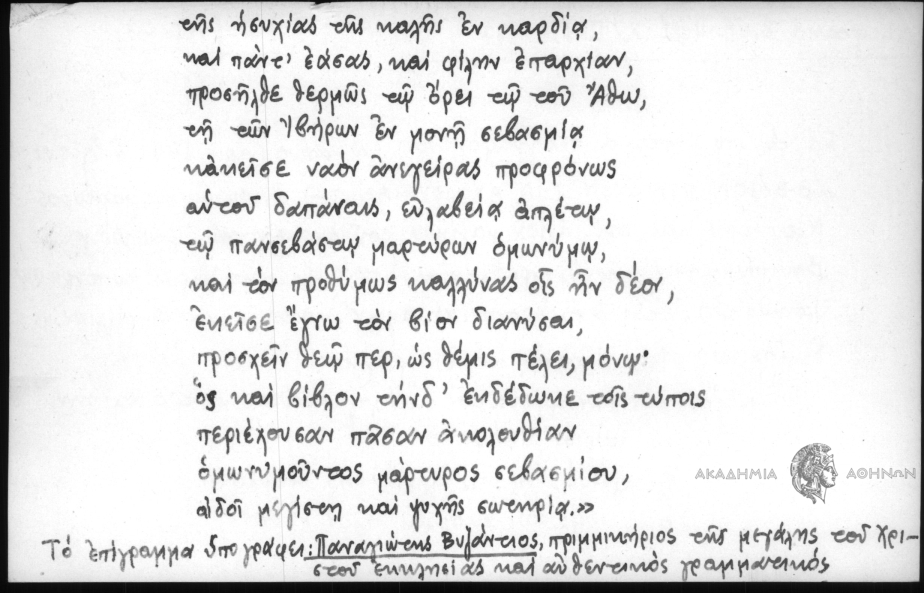 τῆς ἡσυχίας τῆς καλῆς ἐν καρδίᾳ,
καὶ πάντ' ἐάσας, καὶ φίλην ἐπαρχίαν,
προσῆλθε θερμῶς τῷ ὄρει τῷ τοῦ Ἄθω,
τῇ τῶν Ἰβήρων ἐν μονῇ σεβασμίᾳ
κἀκεῖσε ναὸν ἀνεγείρας προφρόνως
αὑτοῦ δαπάναις, εὐλαβείᾳ ἀπλέτῳ,
τῷ πανσεβάστῳ μαρτύρων ὁμωνύμῳ,
καὶ τὸν προθύμως καλλύνας οἷς ἦν δέον,
ἐκεῖσε ἔγνω τὸν βίον διανύσαι,
προσχεῖν θεῷ περ, ὡς θέμις πέλει, μόνῳ·
ὃς καὶ βίβλον τήνδ' ἐκδέδωκε τοῖς τύποις
περιέχουσαν πᾶσαν ἀκολουθίαν
ὁμωνυμοῦντος μάρτυρος σεβασμίου,
αἰδοῖ μεγίστῃ καὶ ψυχῆς σωτηρίᾳ.»
Τὸ ἐπίγραμμα ὑπογράφει: Παναγιώτης Βυζάντιος, πριμμικήριος τῆς μεγάλης τοῦ Χρι-
στοῦ ἐκκλησίας καὶ αὐθεντικὸς γραμματικός
ΑΚΑΔΗΜΙΑ ΑΘΗΝΩΝ